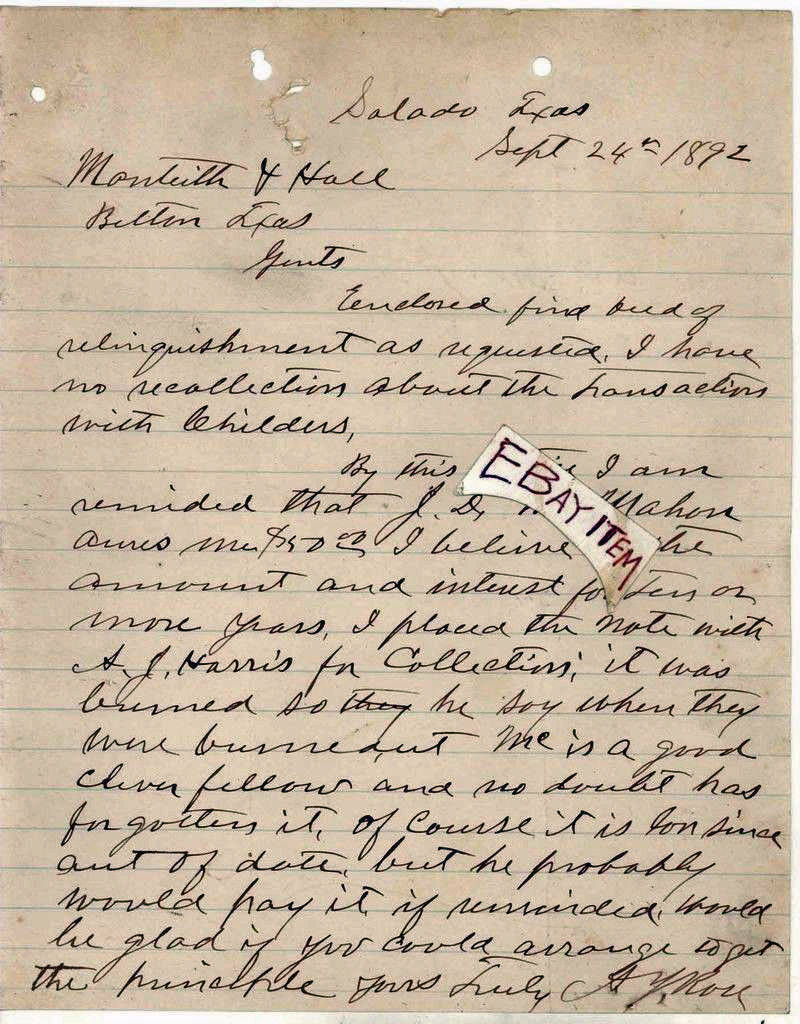 Salado Texas
Sept 24th 1892
Monteith & Hall
Belton Texas
Gents
Enclosed find deed of
relinquishment as requested. I have
no recollection about the transaction
with Childers,
By this I am
reminded that J. D. Mahon
owes me $50 00 I believe the
amount and interest for Ten or
more years, I placed the note with
A. J. Harris for Collection; it was
burned so they he say when they
were burned out Mc is a good
clever fellow and no doubt has
forgotten it, of course it is lon since
out of date, but he probably
would pay it if reminded, would
be glad if you could arrange to get
the principle yours Truly A J Rose
EBAY ITEM